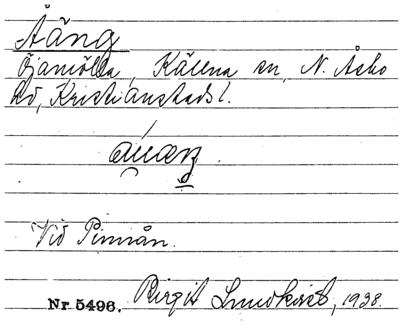 Åäng
Öjamölla, Källna sn, N. Åsbo
hd, Kristianstads l.
Vid Pinnån.
Nr 5496. Birgit Lundkvist, 1938.